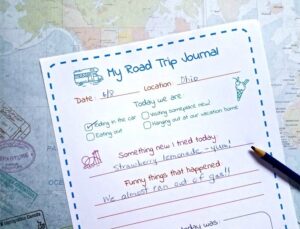 My Road Trip Journal
Date: 6/8 Location Ohio
Today we are
Eating in the car
Visiting someplace new!
Eating out
Hanging out at our vacation home
Something new I tried today:
Strawberry lemonade - yum!
Funny things that happened:
We almost ran out of gas!!
day was: